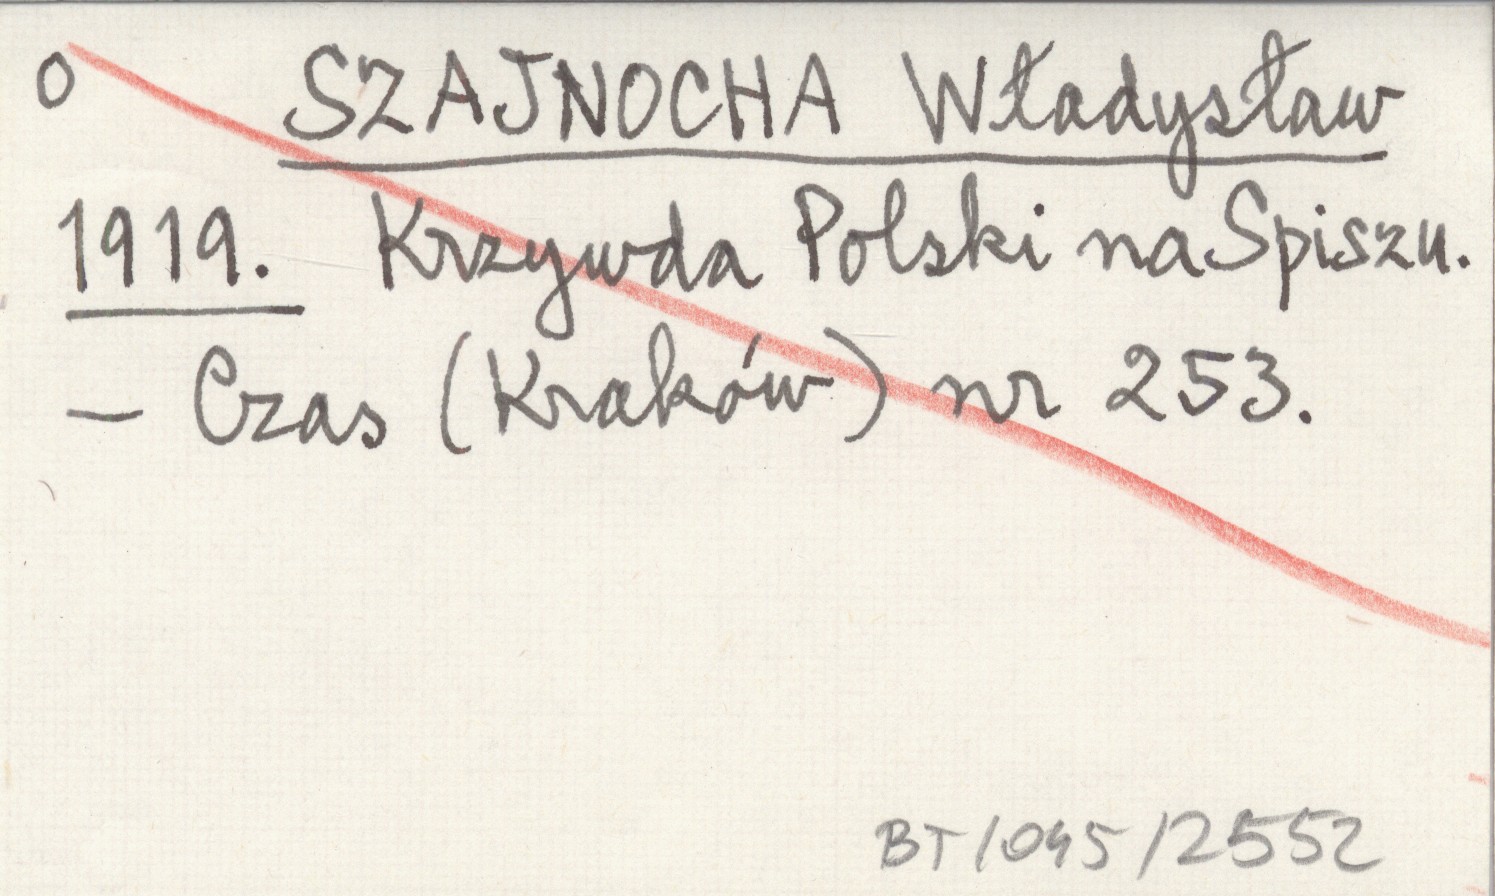 o SZAJNOCHA Władysław
1919. Krzywda Polski na Spiszu.
– Czas (Kraków) nr 253.
BT/045/2552